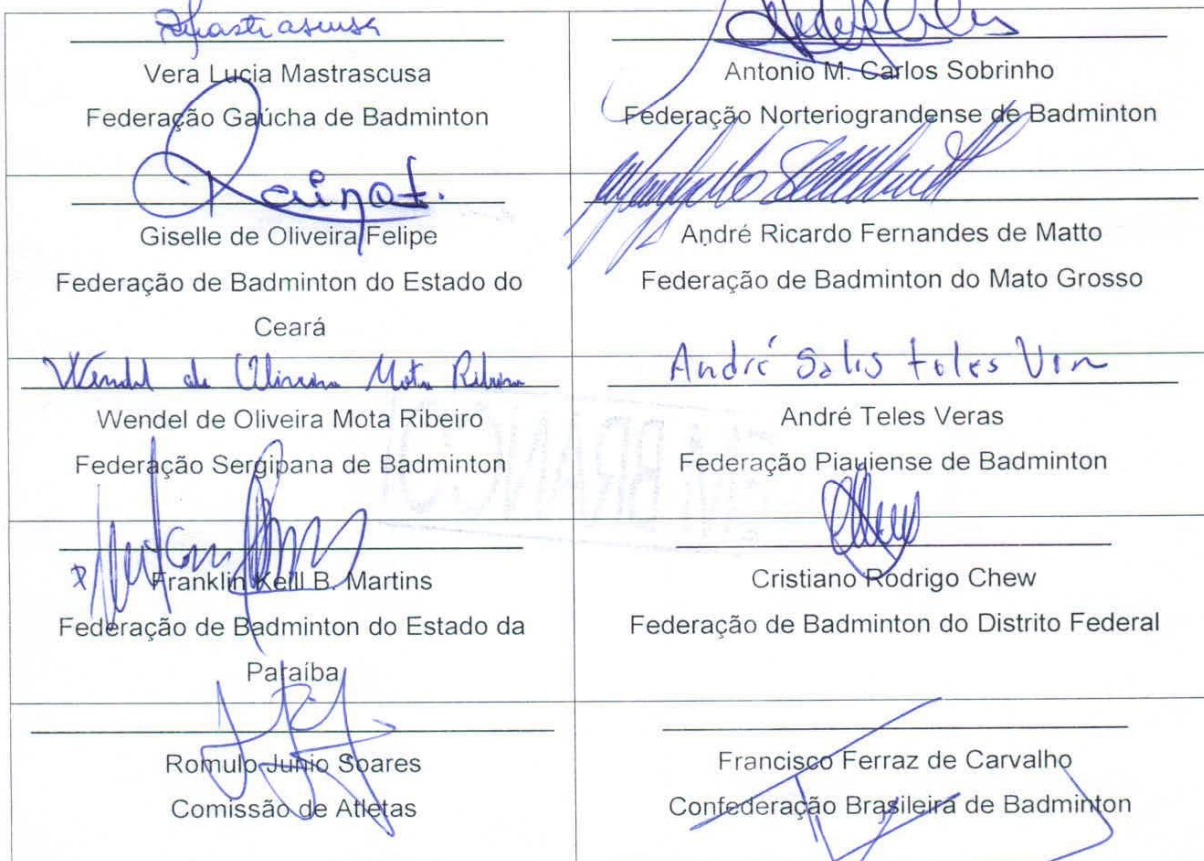 Vera Lucia Mastrascusa
Federação Gaúcha de Badminton
Antonio M. Carlos Sobrinho
Federação Norteriograndense de Badminton
Giselle de Oliveira Felipe
Federação de Badminton do Estado do
Ceará
André Ricardo Fernandes de Matto
Federação de Badminton do Mato Grosso
Wendel de Oliveira Mota Ribeiro
Wendel de Oliveira Mota Ribeiro
Federação Sergipana de Badminton
André Teles Veras
Federação Piauiense de Badminton
EM BRANCO
Franklin Keill B. Martins
Federação de Badminton do Estado da
Paraíba
Cristiano Rodrigo Chew
Federação de Badminton do Distrito Federal
Romulo Junio Soares
Comissão de Atletas
Francisco Ferraz de Carvalho
Confederação Brasileira de Badminton